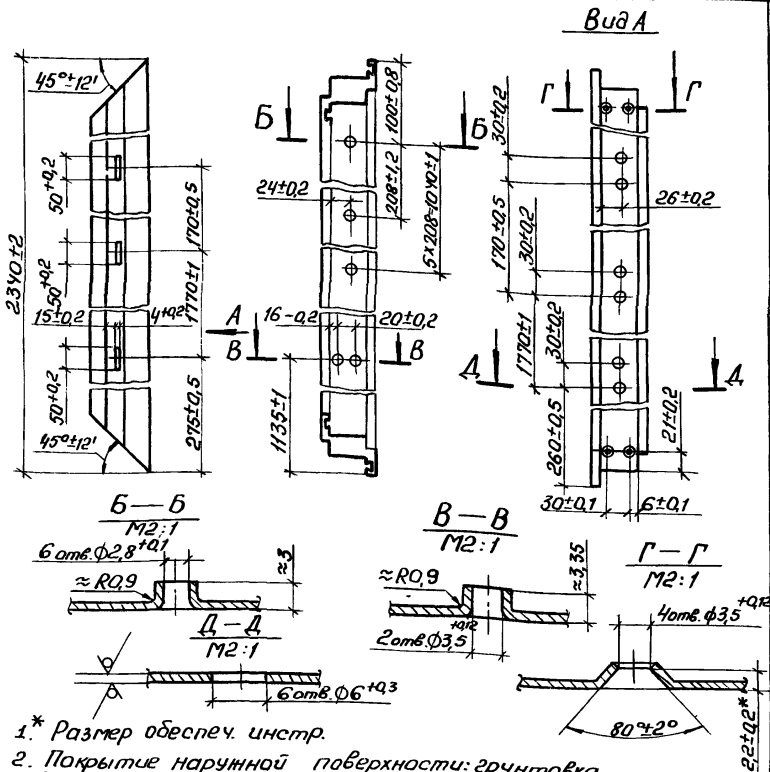 Вид А
45°±12'
2340±2
50+0,2
50+0,2
50+0,2
15±0,2
4+0,2
А
170±0,5
1770±1
275±0,5
45°±12'
Б
Б
100±0,8
208±1,2
5×208=1040±1
24±0,2
16-0,2
20±0,2
В
В
1135±1
Г
Г
30±0,2
170±0,5
30±0,2
26±0,2
1770±1
30±0,2
Д
Д
260±0,5
21±0,2
30±0,1
6±0,1
Б — Б
М2:1
6 отв. ф2,8+0,1
≈R0,9
≈3
В — В
М2:1
≈R0,9
≈3,35
2 отв. ф3,5+0,12
Г — Г
М2:1
4 отв. ф3,5+0,12
80°±2°
2,2±0,2*
Д — Д
М2:1
6 отв. ф6+0,3
1.* Размер обеспеч. инстр.
2. Покрытие наружной поверхности: грунтовка